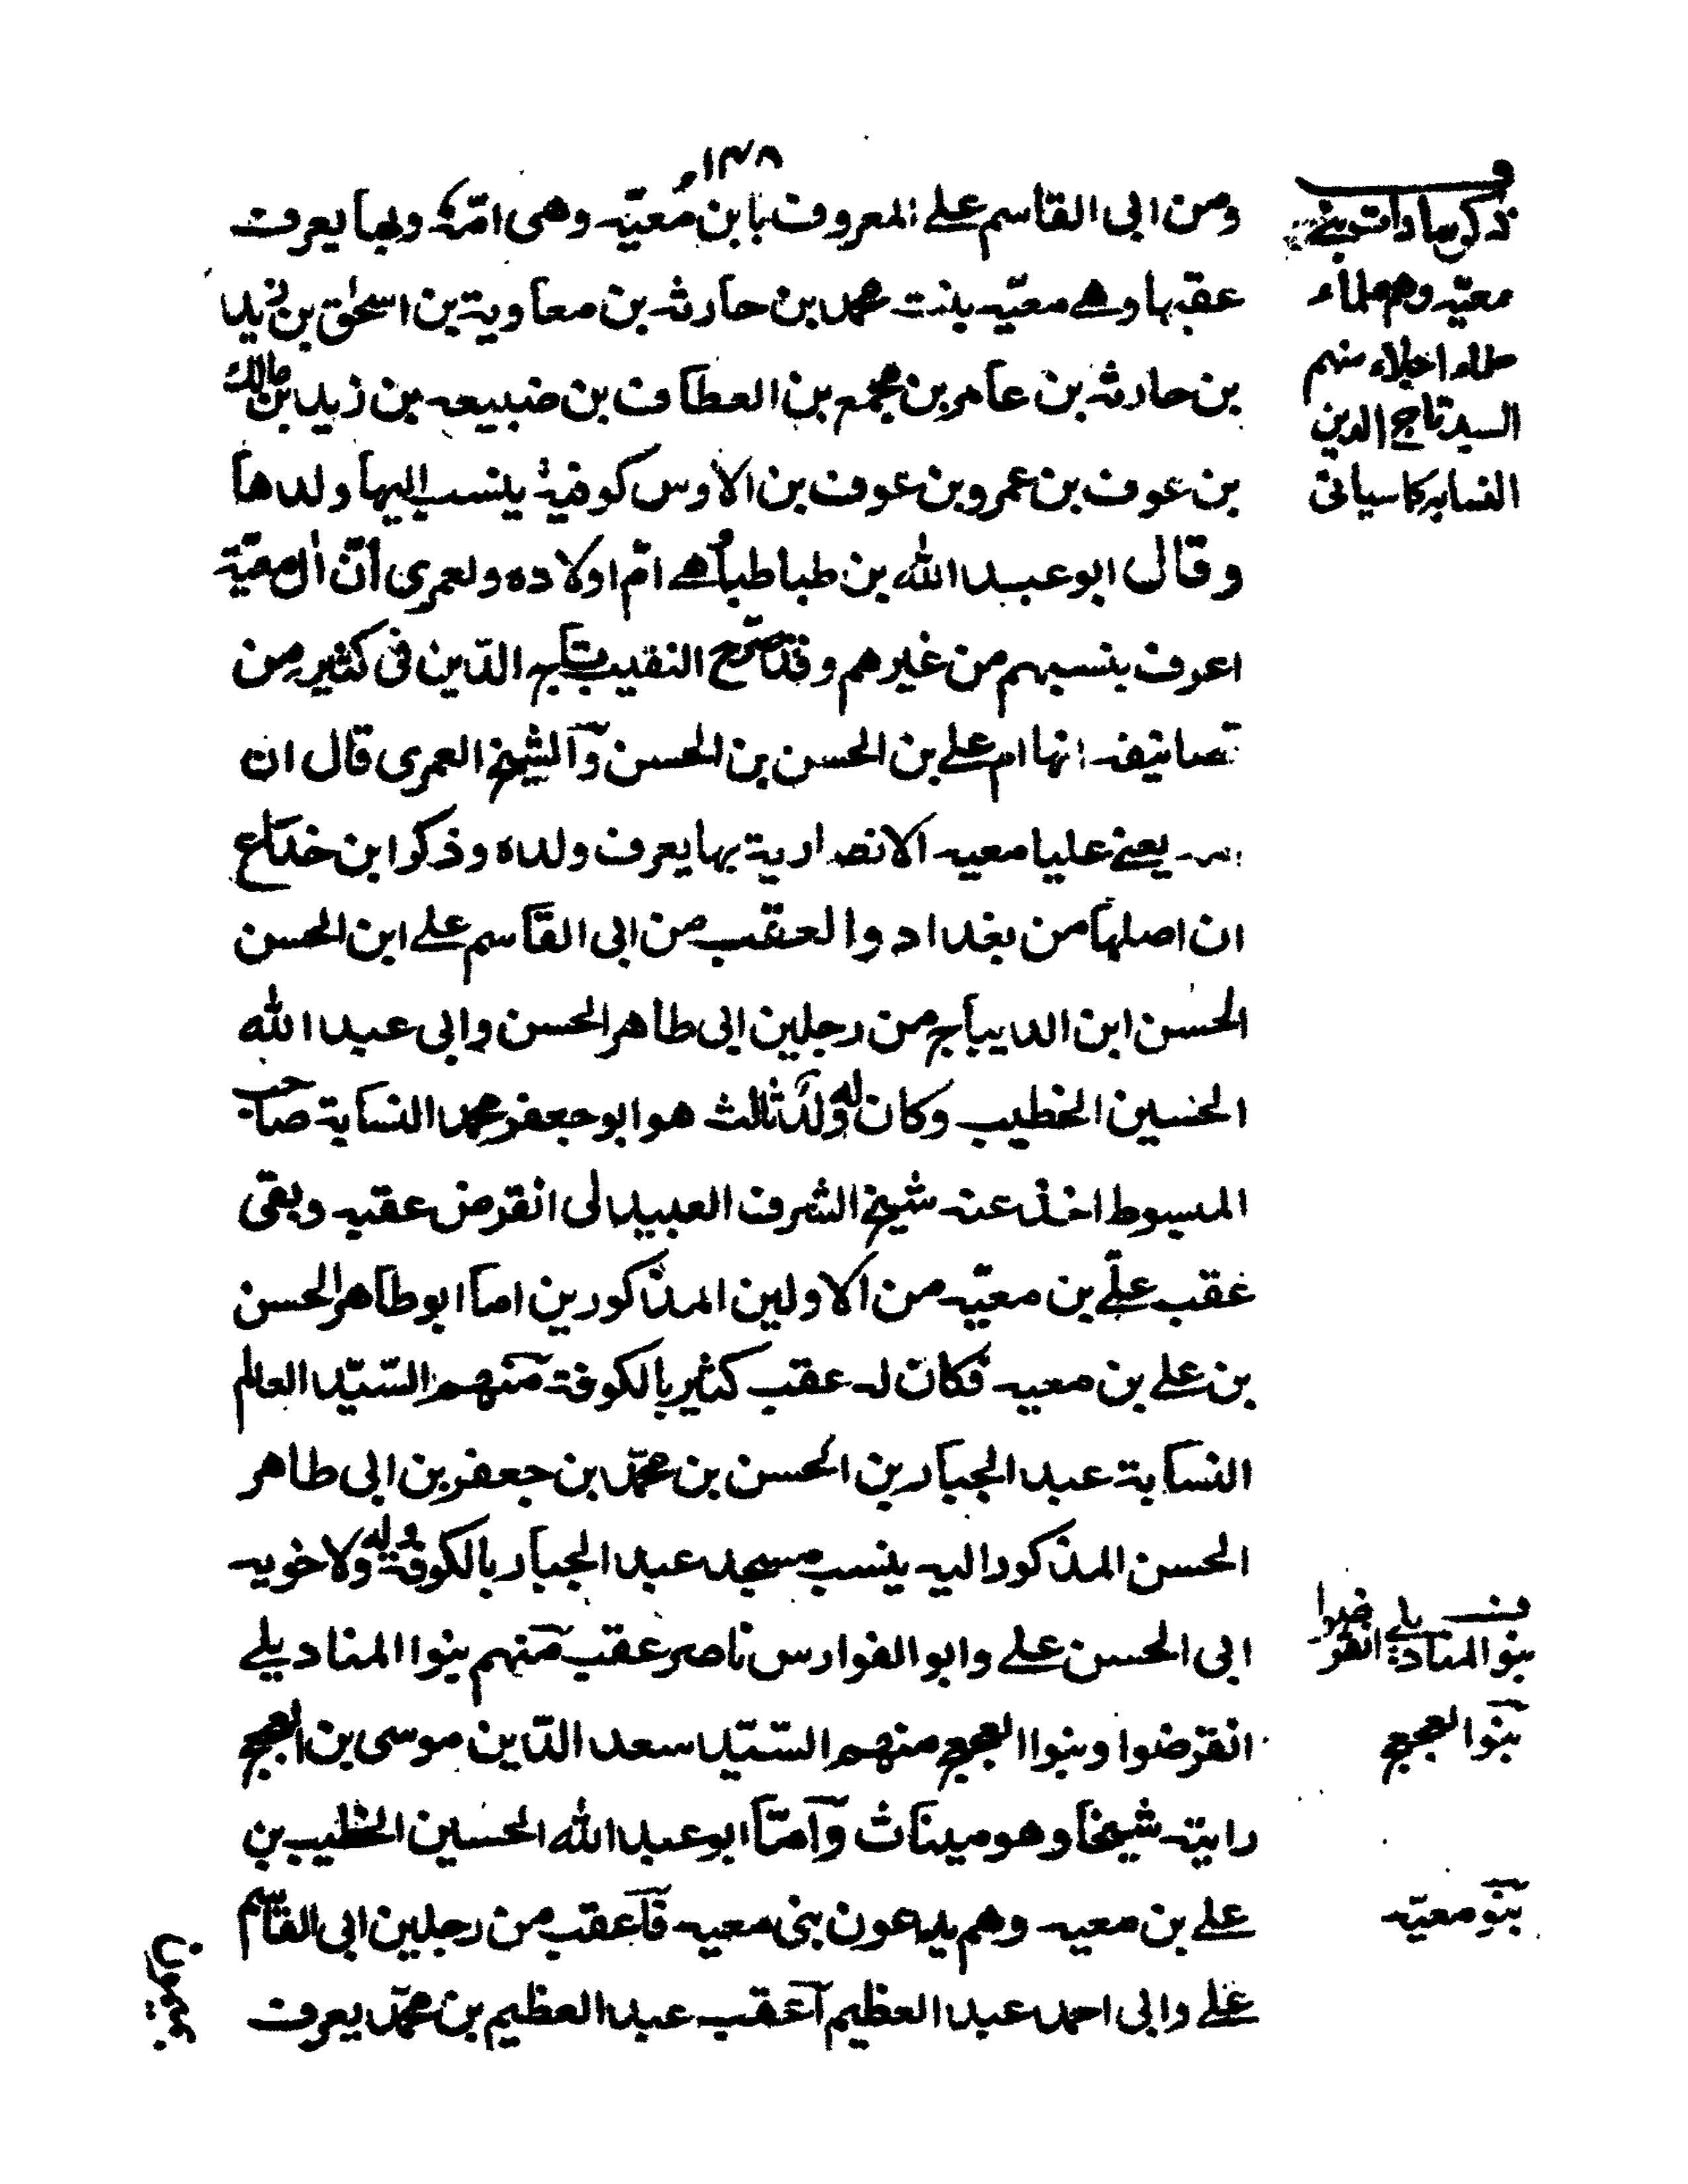 ١٣٨
ومن ابى القاسم على المعروف بابن معيّه وهى امّه وبها يعرف
عقبها وهى معيّه بنت محمد بن حارثه بن معاوية بن اسحٰق بن زيد
بن حارثه بن عامر بن مجمع بن العطاف بن ضبيعه بن زيد بن مالك
بن عوف بن عمرو بن عوف بن الاوس كوفية ينسب اليها ولدها
وقال ابو عبد الله بن طباطبا هى امّ اولاده ولعمرى انّ ال معيّة
اعرف بنسبهم من غيرهم وقد صرح النقيب تاج الدّين فى كثير من
تصانيفه انها ام على بن الحسن بن الحسن والشيخ العمرى قال ان
يعنى عليا معيه الانصارية بها يعرف ولده وذكر ابن خداع
ان اصلها من بغداد والعقب من ابى القاسم على ابن الحسن
الحسن ابن الديباج من رجلين ابى طاهر الحسن وابى عبد الله
الحسين الخطيب وكان له ولد ثالث هو ابو جعفر محمد النسابة صاحب
المبسوط اخذ عنه شيخ الشرف العبيدلى انقرض عقبه وبقى
عقب علّى بن معيّه من الاولين المذكورين اما ابو طاهر الحسن
بن على بن معيه فكان له عقب كثير بالكوفة منهم السّيّد العالم
النسابة عبد الجبار بن الحسن بن محمّد بن جعفر بن ابى طاهر
الحسن المذكور اليه ينسب مسجد عبد الجبار بالكوفة وله ولاخويه
ابى الحسن على وابو الفوارس ناصر عقب منهم بنوا المناديلى
انقرضوا وبنوا العجعج منهم السّيّد سعد الدّين موسى بن العجعج
رايته شيخا وهو ميناث وامّا ابو عبد الله الحسين الخطيب بن
على بن معيه وهم يدعون بنى معيه فاعقب من رجلين ابى القاسم
على وابى احمد عبد العظيم اعقب عبد العظيم بن محمّد يعرف
ذكر سادات بنى
معيّه وهم علماء
اجلاء منهم
السيد تاج الدين
النسابه كما سياتى
بنو المناديلى انقرضوا
بنوا العجعج
بنو معيّه